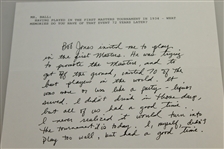 MR. HALL:
HAVING PLAYED IN THE FIRST MASTERS TOURNAMENT IN 1934 - WHAT
MEMORIES DO YOU HAVE OF THAT EVENT 72 YEARS LATER?
Bob Jones invited me to play
in the first Masters. He was trying
to promote the Masters, and to
get off the ground, invited 70 of the
best players in the world. It
was one or like a party - liquor
served, I didn't drink those days,
but all of us had a good time.
I never realized it would turn into
the tournament it is today. I, myself, didn't
play so well, but had a good time.